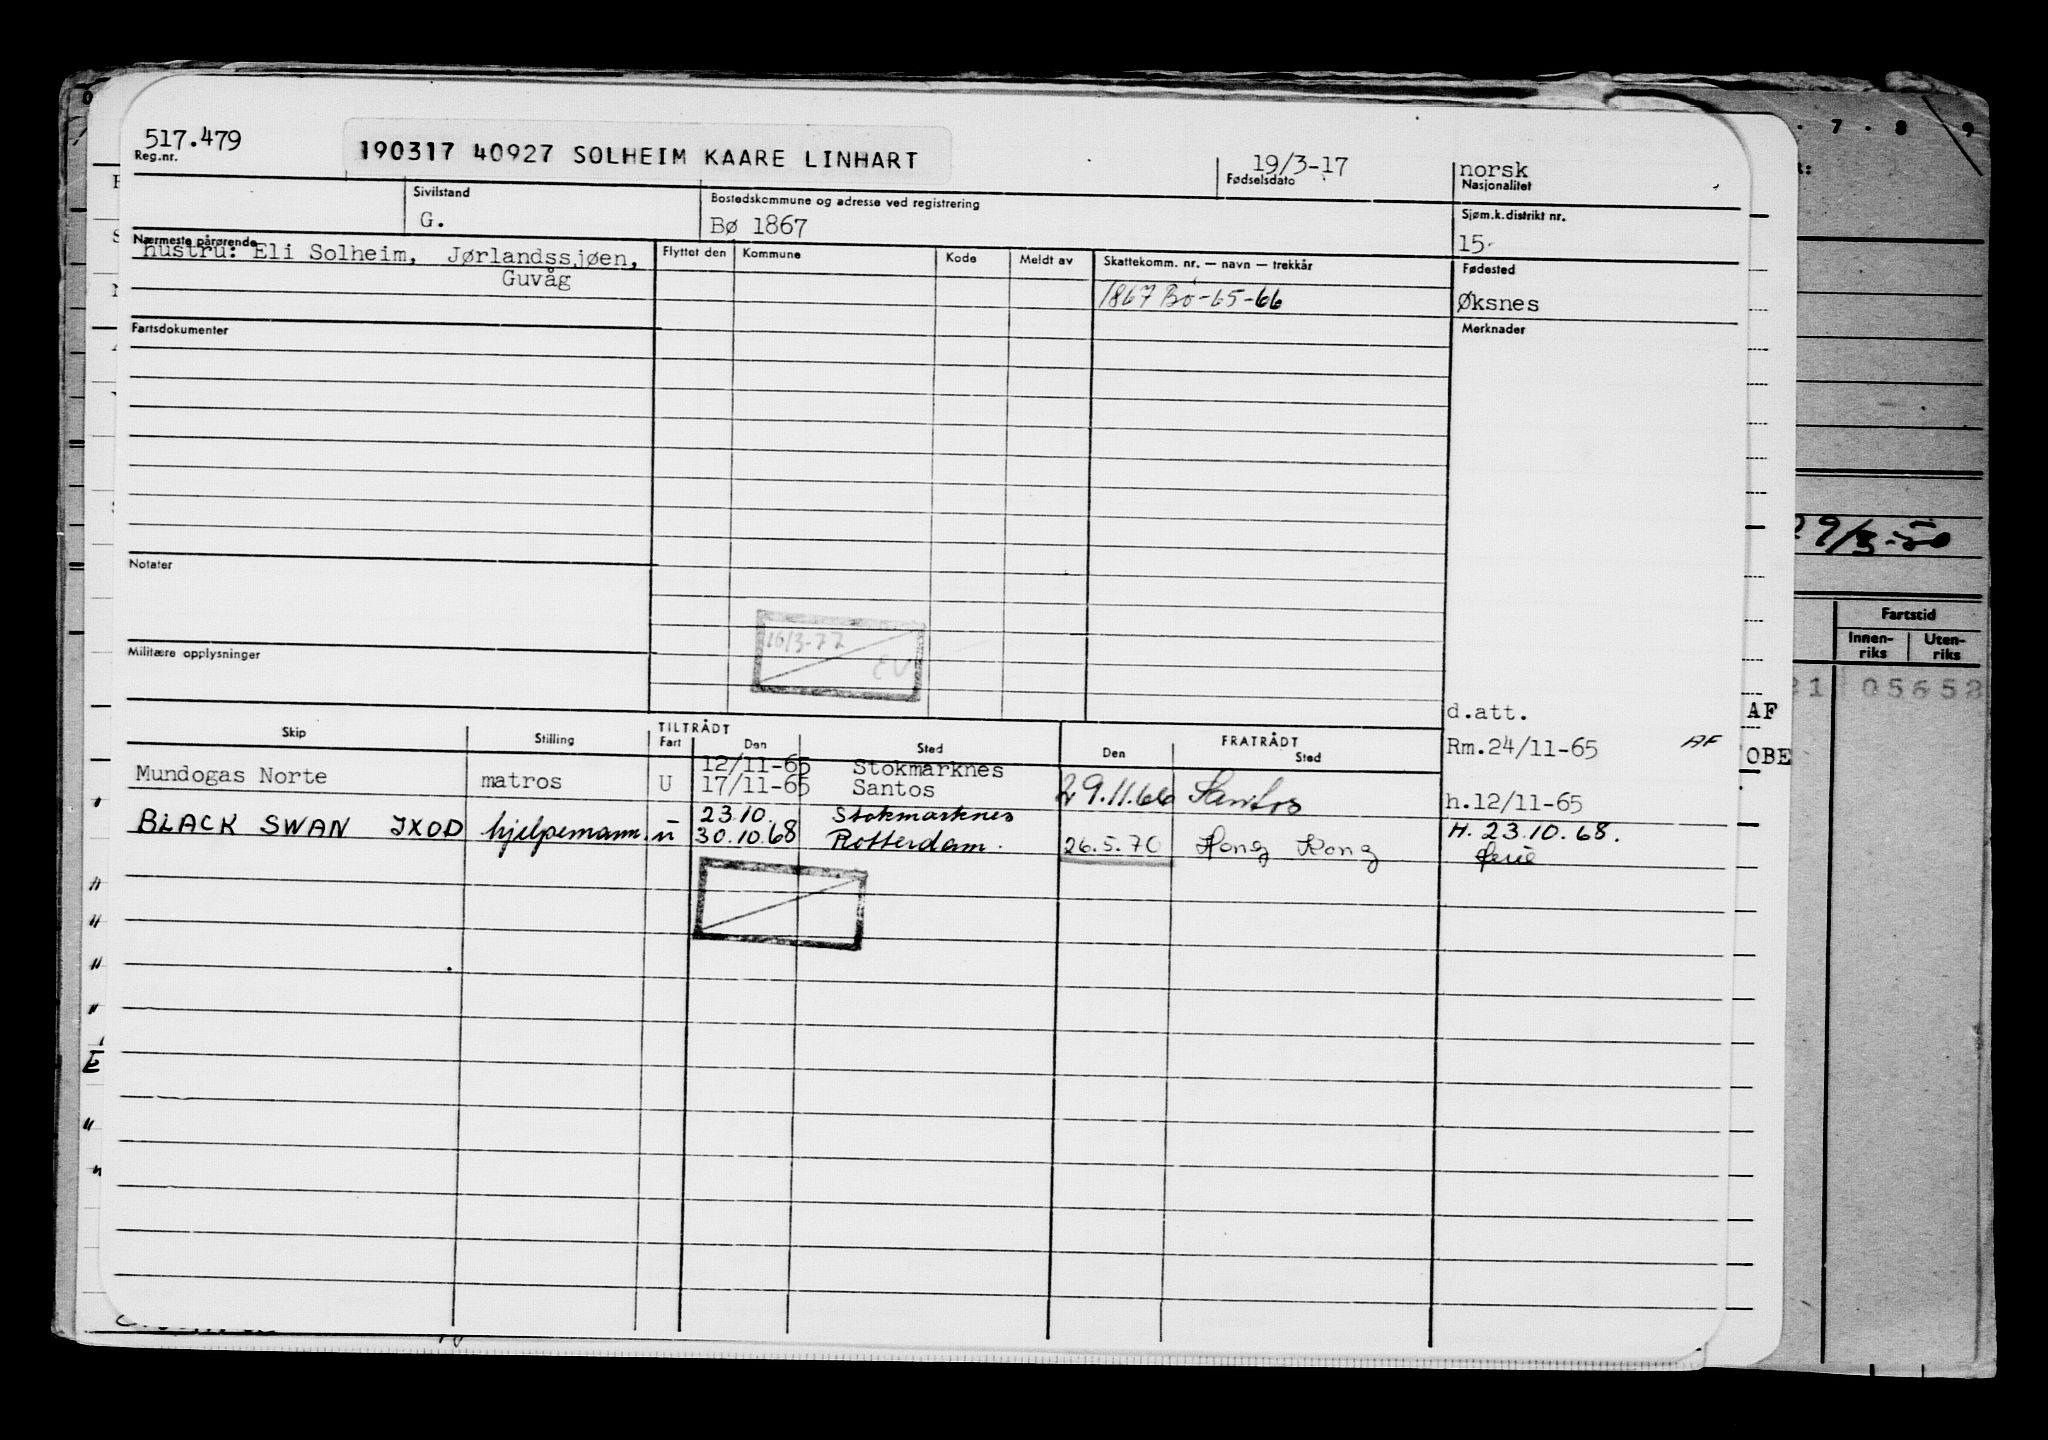 517.479
Reg.nr.
190317 40927 SOLHEIM KAARE LINHART
19/3-17
Fødselsdato
norsk
Nasjonalitet
Sivilstand
G.
Bostedskommune og adresse ved registrering
Bø 1867
Sjøm.k.distrikt nr.
15
Nærmeste pårørende
hustru: Eli Solheim, Jørlandssjøen,
Guvåg
Flyttet den Kommune Kode Meldt av Skattekomm. nr. — navn — trekkår
1867 Bø-65-66
Fødested
Øksnes
Fartsdokumenter
Merknader
Notater
16/3-77
EU
Militære opplysninger
d.att.
Skip Stilling TILTRÅDT Fart Den Sted FRATRÅDT Den Sted
Rm.24/11-65 AF
12/11-65 Stokmarknes
Mundogas Norte matros U 17/11-65 Santos 29.11.66 Santos h.12/11-65
23.10. Stokmarknes H. 23.10.68.
BLACK SWAN JXOD hjelpemann u 30.10.68 Rotterdam. 26.5.70 Hong Kong ferie
7 . 8 9
29/3-50
Fartstid
Innen-
riks
Uten-
riks
31 05652
AF
OBE